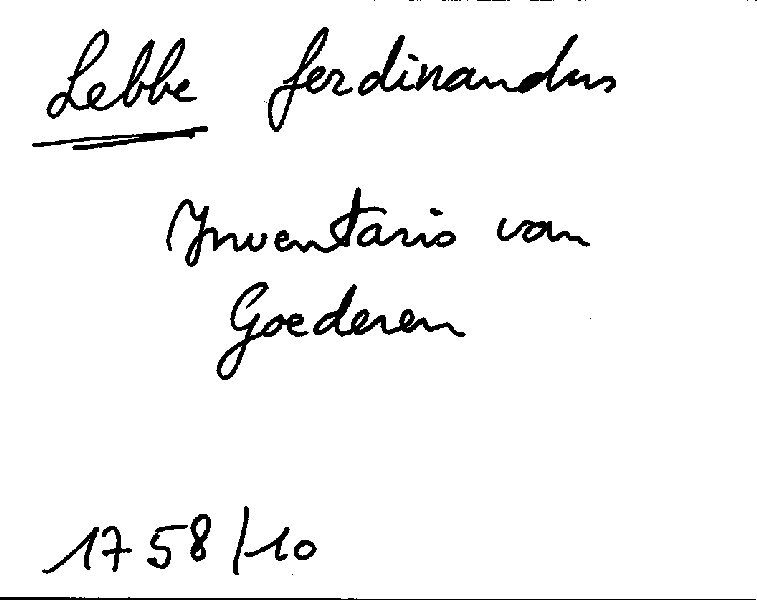 Lebbe ferdinandus
Inventaris van
Goederen
1758/10